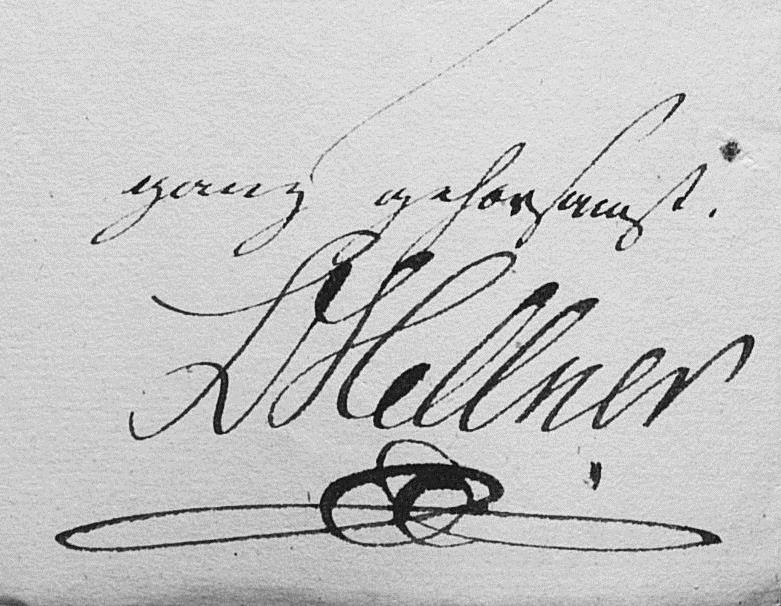 ganz gehorsamst.
D Hellner